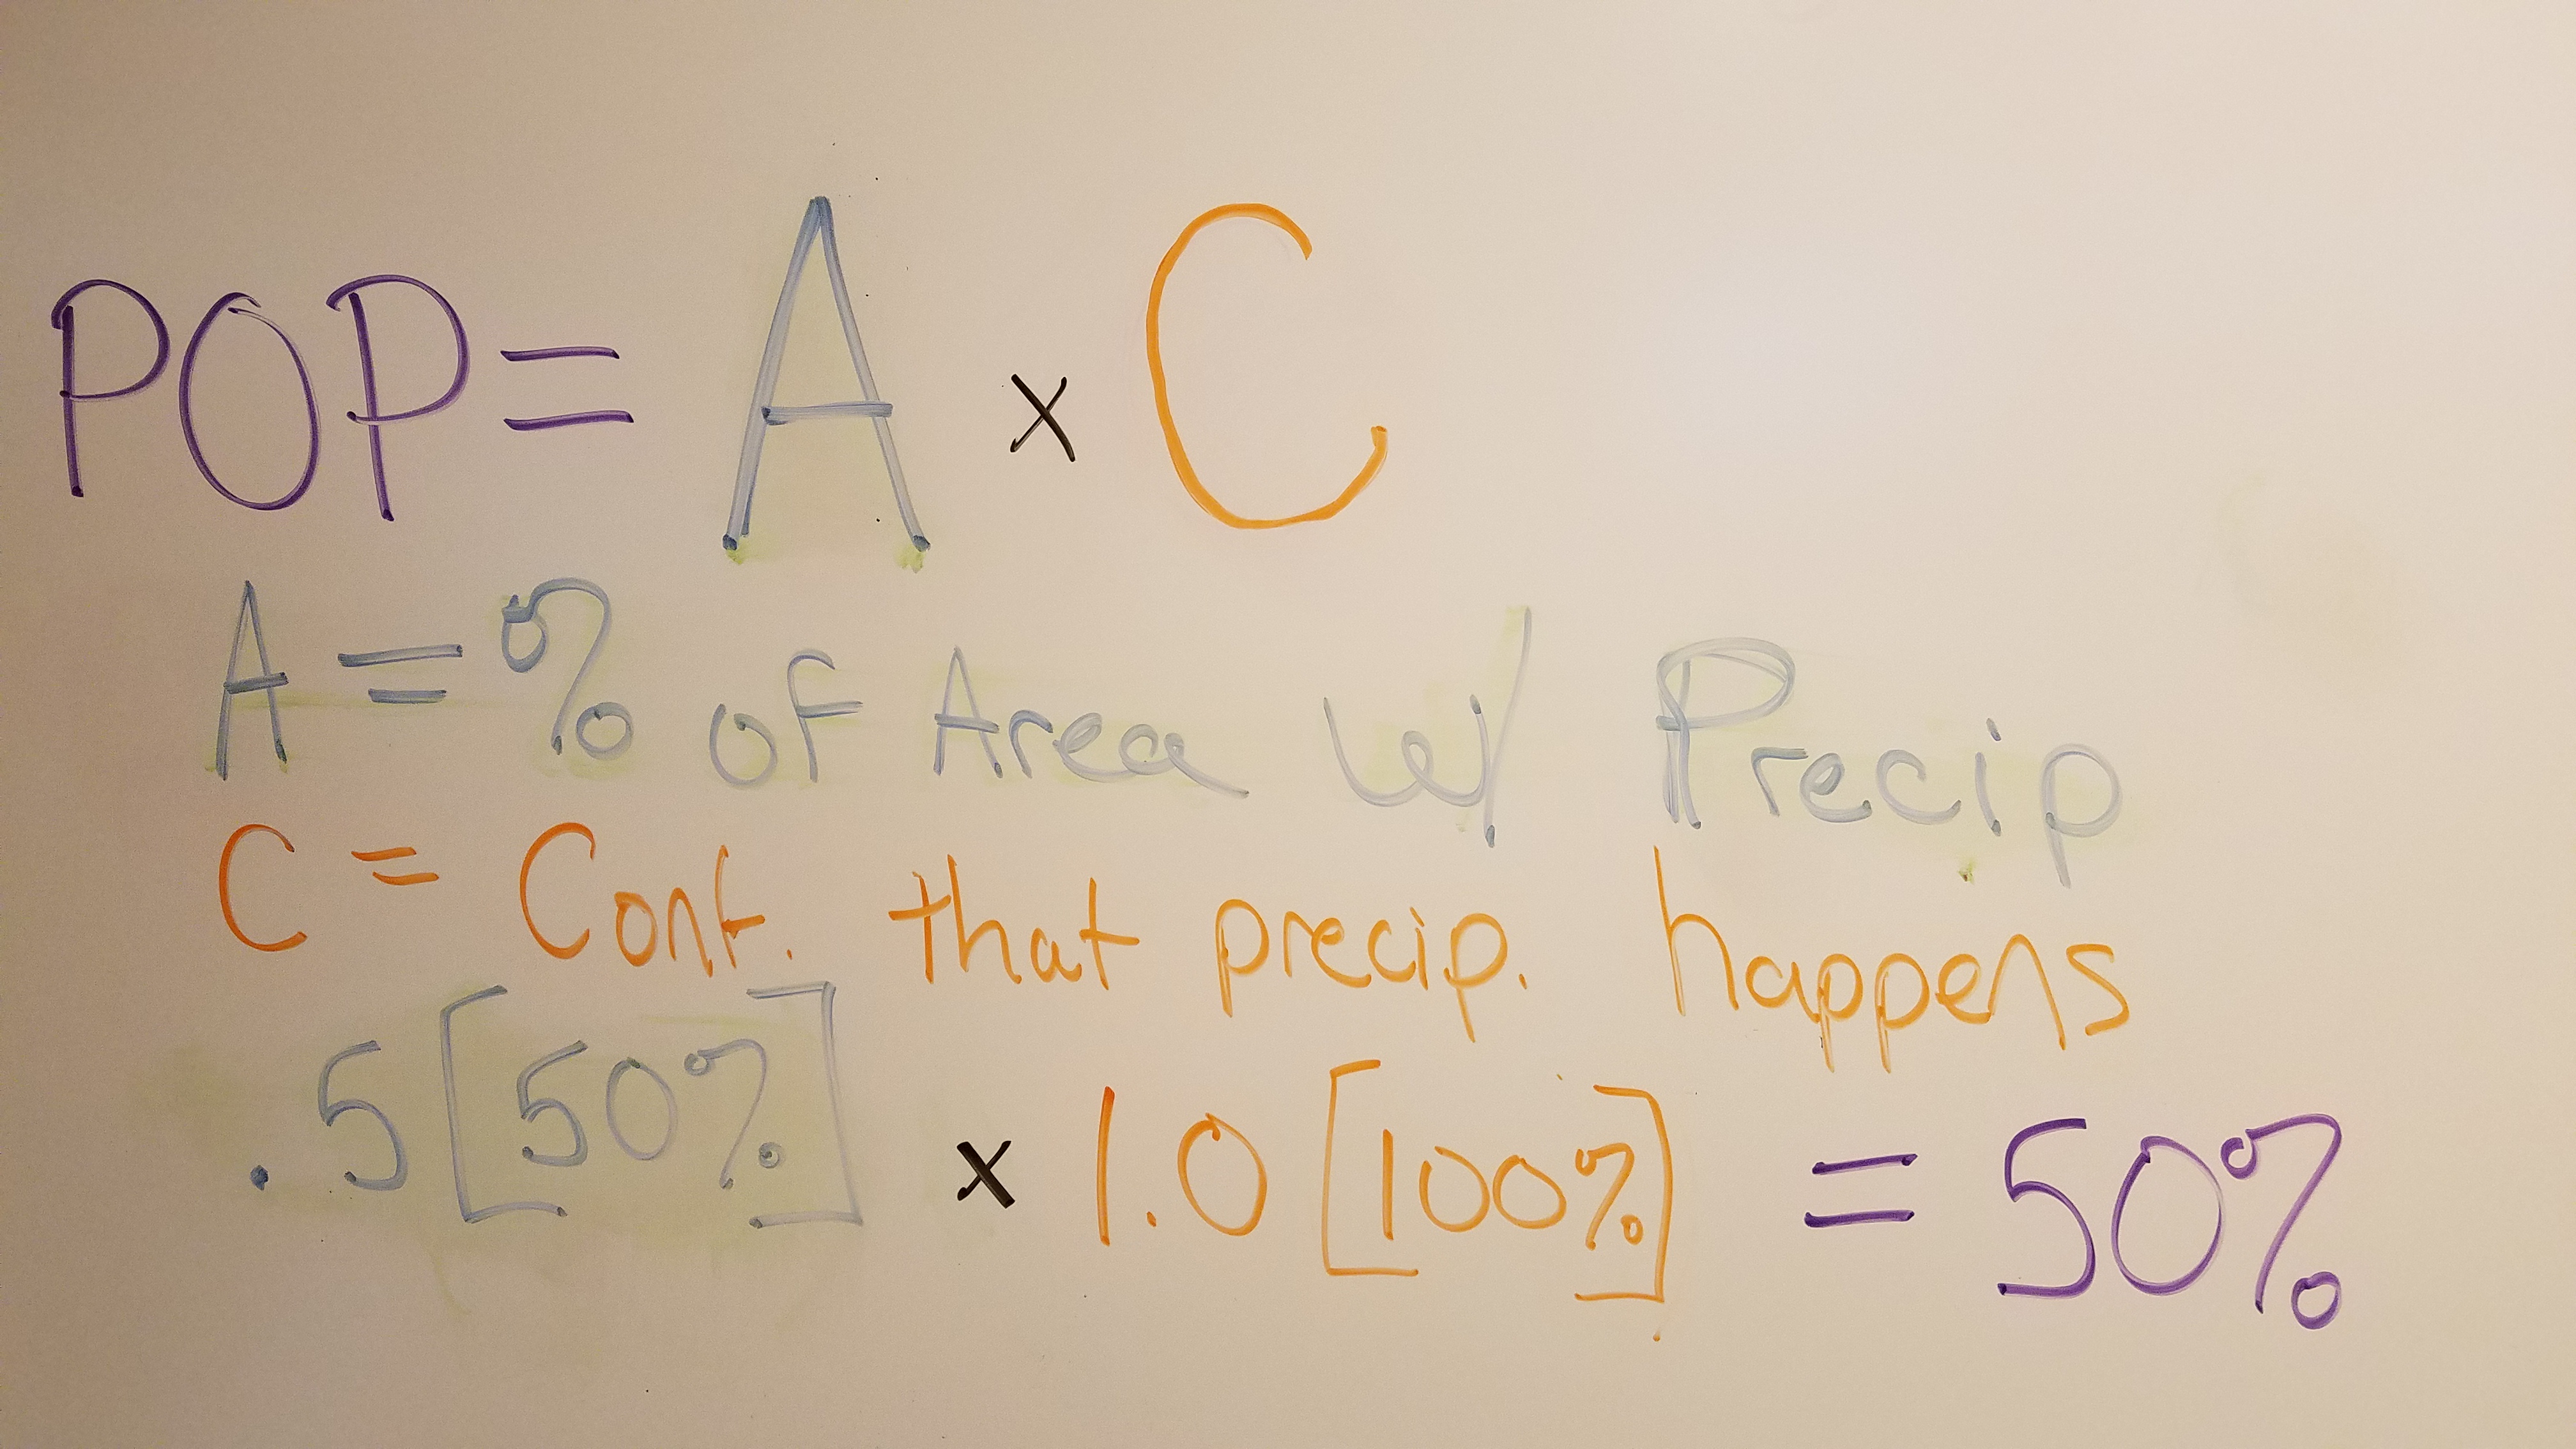 POP = A x C
A = % of Area w/ Precip
C = Conf. that precip. happens
.5 [50%] x 1.0 [100%] = 50%